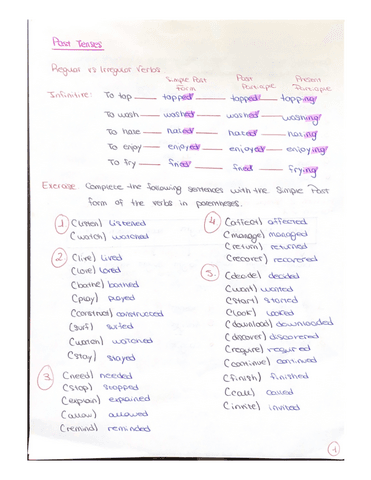 Past Tenses
Regular vs Irregular Verbs
Simple Past Form Past Participle Present Participle
Infinitive: To tap — tapped — tapped — tapping
To wash — washed — washed — washing
To hate — hated — hated — hating
To enjoy — enjoyed — enjoyed — enjoying
To fry — fried — fried — frying
Exercise Complete the following sentences with the Simple Past
form of the verbs in parentheses.
1 (listen) listened
(watch) watched
2 (live) lived
(love) loved
(play) played
(construct) constructed
(surf) surfed
watched
(stay) stayed
3. (need) needed
(stop) stopped
(explain) explained
(allow) allowed
(remind) reminded
4 (affect) affected
(manage) managed
(return) returned
(recover) recovered
5. (decide) decided
(want) wanted
(start) started
(look) looked
(download) downloaded
(discover) discovered
(require) required
(continue) continued
(finish) finished
(call) called
(invite) invited
1